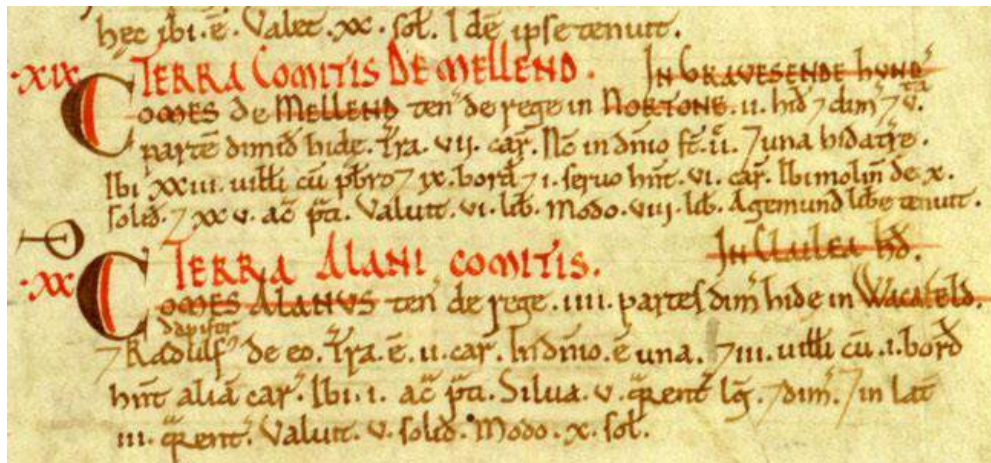 hęc ibi .ē. Valet .xx. sol. Idē ipse tenuit.
.XIX. TERRA COMITIS DE MELLEND. IN GRAVESENDE HUND'
COMES de MELLEND ten' de rege in NORTONE .ii. hid' 7 dim' 7 v.ta
partē dimid hidę. T'ra .vii. car'. Nc̄ in dn̄io st̄ .ii. 7 una hida t'rę.
Ibi xxiii. uilłi cū pb̄ro 7 ix. bord' 7 i. seruo hn̄t .vi. car'. Ibi molin̄ de x.
solid'. 7 xxv. ac̄ p̄ti. Valuit .vi. lib'. Modo .viii. lib'. Agemund lib'e tenuit.
.XX. TERRA ALANI COMITIS. IN CLAILEA HD'.
COMES ALANVS ten' de rege .iiii. partes dim' hidę in WACAFELD.
dapifer
7 Radulf' de eo. T'ra .ē. ii. car'. In dn̄io .ē una. 7 iii. uilłi cū .i. bord'
hn̄t aliā car'. Ibi .i. ac̄ p̄ti. Silua .v. q̄rent' lḡ. 7 dim'. 7 in lat'
iii. q̄rent'. Valuit .v. solid'. Modo .x. sol.